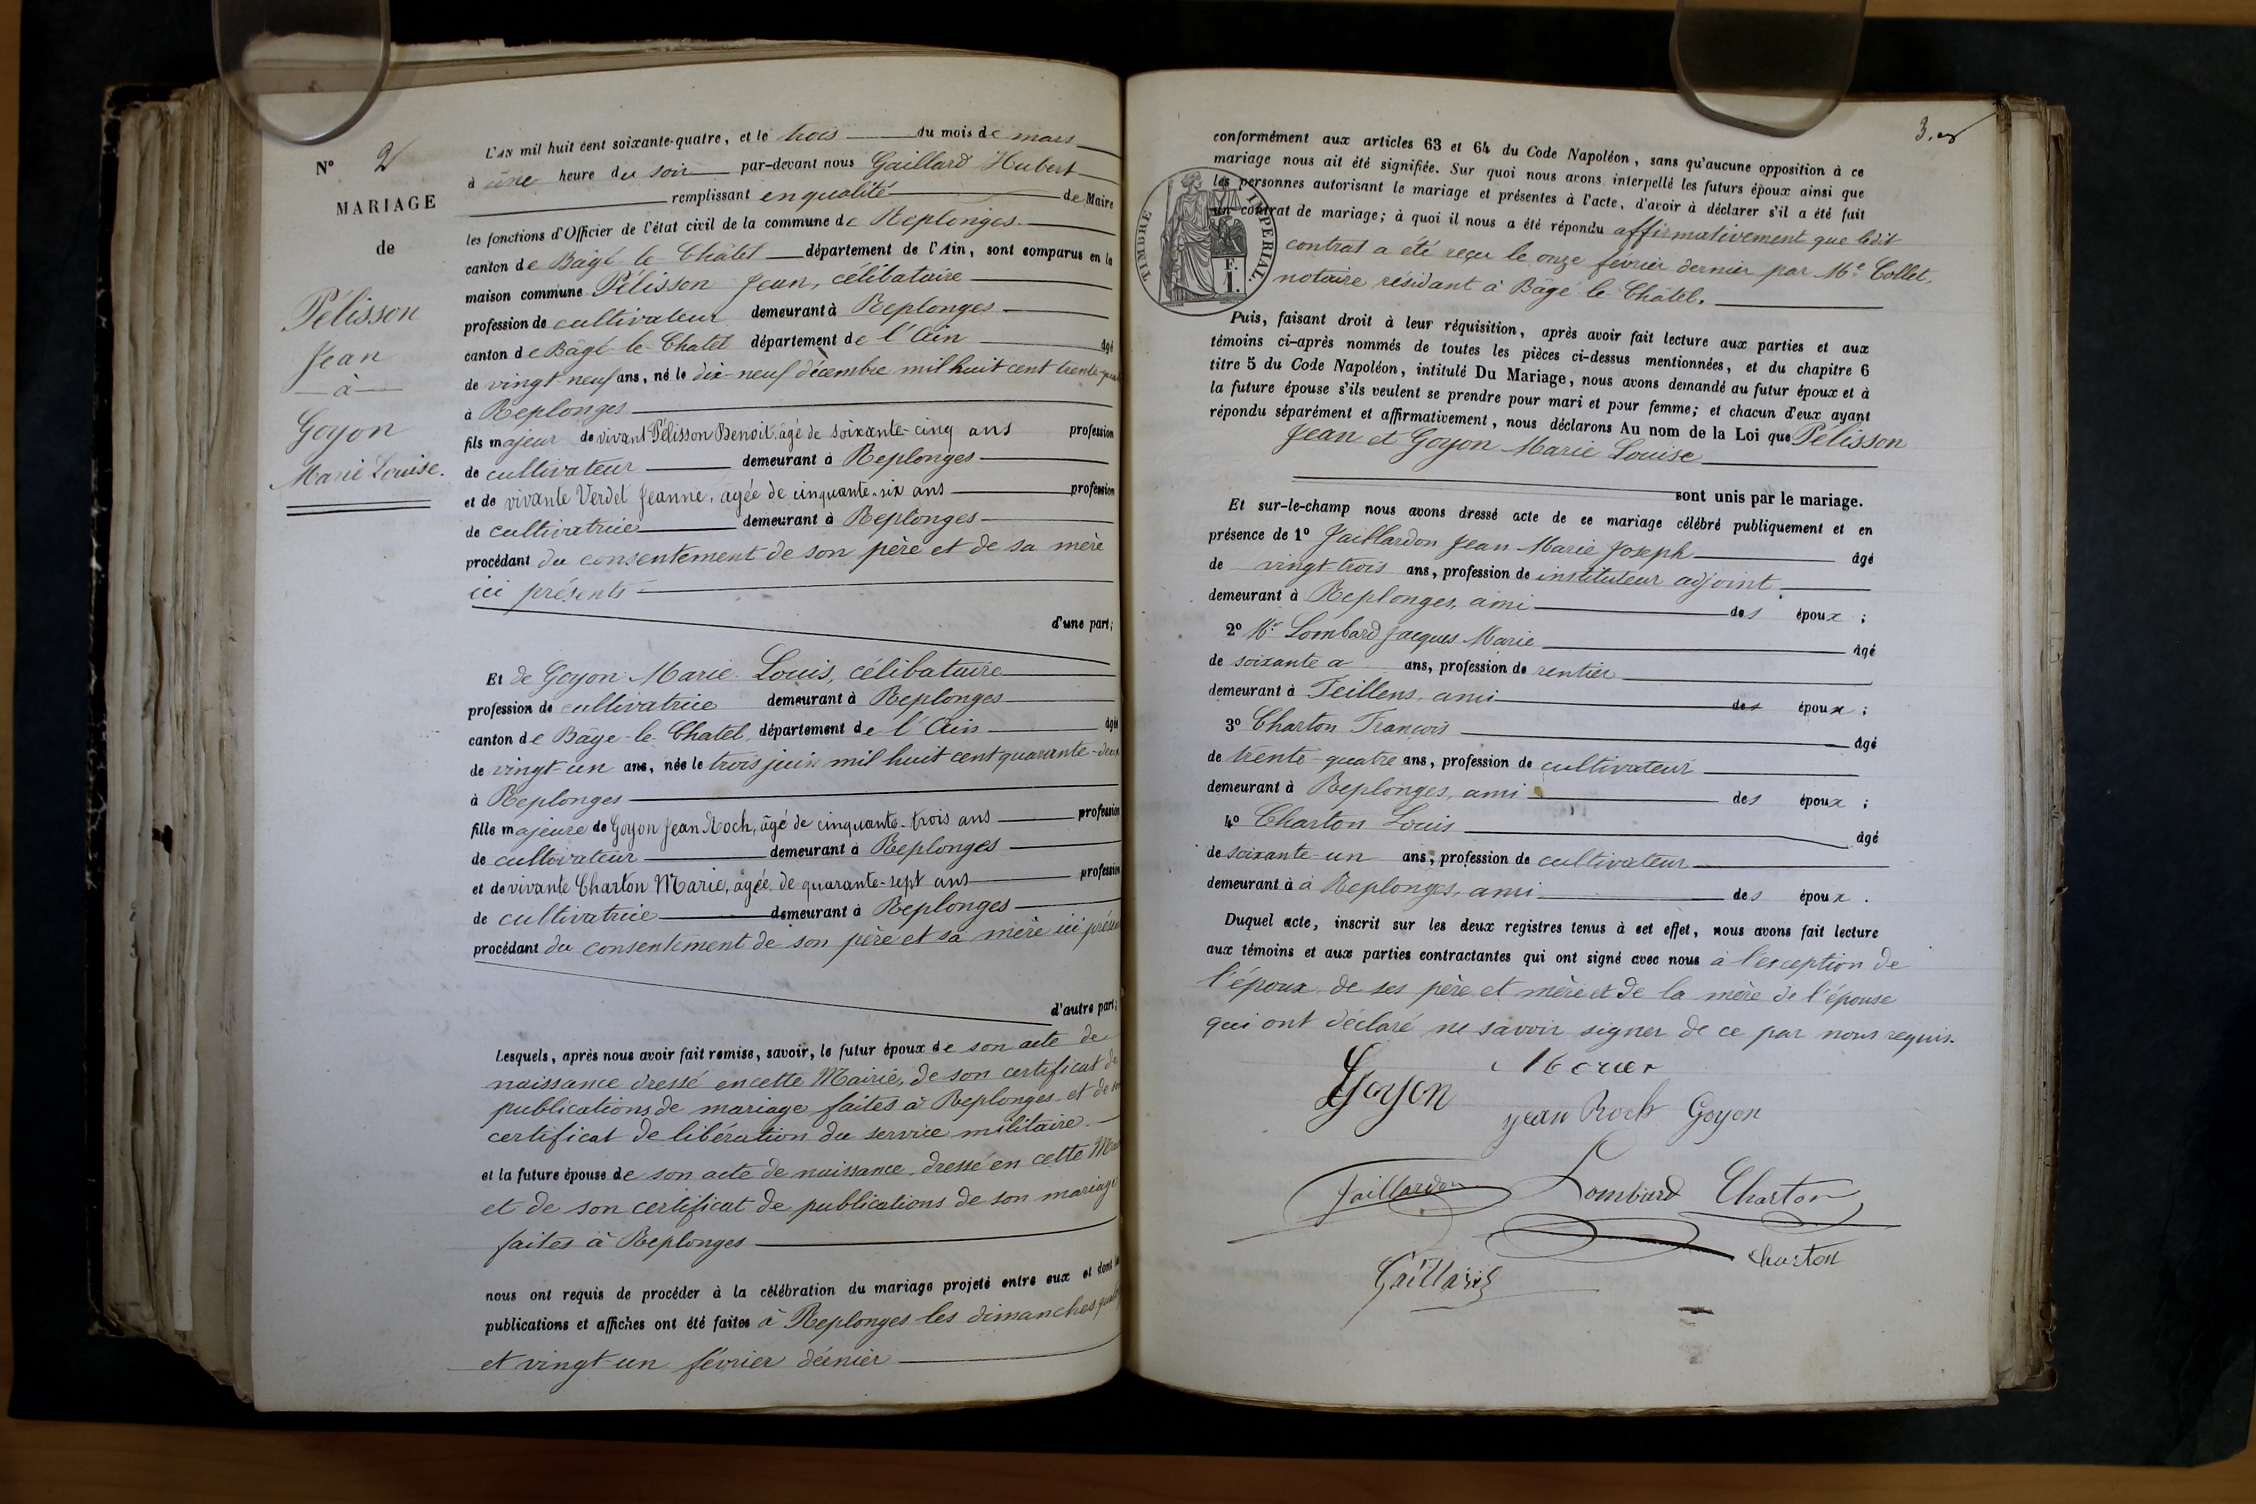 N° 2
MARIAGE
de
Pélisson
Jean
à
Goyon
Marie Louise.
L'AN mil huit cent soixante-quatre, et le trois du mois de mars
à une heure du soir par-devant nous Gaillard Hubert
remplissant en qualité de Maire
les fonctions d'Officier de l'état civil de la commune de Replonges
canton de Bâgé-le-Châtel département de l'Ain, sont comparus en la
maison commune Pélisson Jean, célibataire
profession de cultivateur demeurant à Replonges
canton de Bâgé-le-Chatel département de l'Ain âgé
de vingt neuf ans, né le dix-neuf décembre mil huit cent trente-quat
à Replonges
fils majeur de vivant Pélisson Benoit, âgé de soixante-cinq ans profession
de cultivateur demeurant à Replonges
et de vivante Verdet Jeanne, agée de cinquante-six ans profession
de cultivatrice demeurant à Replonges
procédant du consentement de son père et de sa mère
ici présents
d'une part;
Et de Goyon Marie Louis, célibataire
profession de cultivatrice demeurant à Replonges
canton de Bâge-le-Chatel département de l'Ain âgée
de vingt-un ans, née le trois juin mil huit cent quarante-deux
à Replonges
fille majeure de Goyon Jean Roch, âgé de cinquante-trois ans profession
de cultivateur demeurant à Replonges
et de vivante Charton Marie, agée de quarante-sept ans profession
de cultivatrice demeurant à Replonges
procédant du consentement de son père et sa mère ici présen
d'autre part;
Lesquels, après nous avoir fait remise, savoir, le futur époux de son acte de
naissance dressé en cette Mairie, de son certificat de
publications de mariage faites à Replonges et de son
certificat de libération du service militaire
et la future épouse de son acte de naissance dressé en cette Mai
et de son certificat de publications de son mariage
faites à Replonges
nous ont requis de procéder à la célébration du mariage projeté entre eux et dont les
publications et affiches ont été faites à Replonges les dimanches
et vingt-un février dérnier
3.
conformément aux articles 63 et 64 du Code Napoléon, sans qu'aucune opposition à ce
mariage nous ait été signifiée. Sur quoi nous avons interpellé les futurs époux ainsi que
les personnes autorisant le mariage et présentes à l'acte, d'avoir à déclarer s'il a été fait
un contrat de mariage; à quoi il nous a été répondu affirmativement que ledit
contrat a été reçu le onze février dernier par Me Collet,
notaire résidant à Bâgé-le-Châtel.
TIMBRE IMPERIAL.
F.
1.
Puis, faisant droit à leur réquisition, après avoir fait lecture aux parties et aux
témoins ci-après nommés de toutes les pièces ci-dessus mentionnées, et du chapitre 6
titre 5 du Code Napoléon, intitulé Du Mariage, nous avons demandé au futur époux et à
la future épouse s'ils veulent se prendre pour mari et pour femme; et chacun d'eux ayant
répondu séparément et affirmativement, nous déclarons Au nom de la Loi que Pélisson
Jean et Goyon Marie Louise
sont unis par le mariage.
Et sur-le-champ nous avons dressé acte de ce mariage célébré publiquement et en
présence de 1° Jaillardon Jean Marie Joseph âgé
de vingt-trois ans, profession de instituteur adjoint
demeurant à Replonges, ami des époux;
2° Mr Lombard Jacques Marie âgé
de soixante a ans, profession de rentier
demeurant à Feillens, ami des époux;
3° Charton François âgé
de trente-quatre ans, profession de cultivateur
demeurant à Replonges, ami des époux;
4° Charton Louis âgé
de soixante-un ans, profession de cultivateur
demeurant à à Replonges, ami des époux.
Duquel acte, inscrit sur les deux registres tenus à cet effet, nous avons fait lecture
aux témoins et aux parties contractantes qui ont signé avec nous à l'exception de
l'époux de ses père et mère et de la mère de l'épouse
qui ont déclaré ne savoir signer de ce par nous requis.
Goyon
jean Roch Goyon
Jaillardon Lombard Charton
Charton
Gaillard